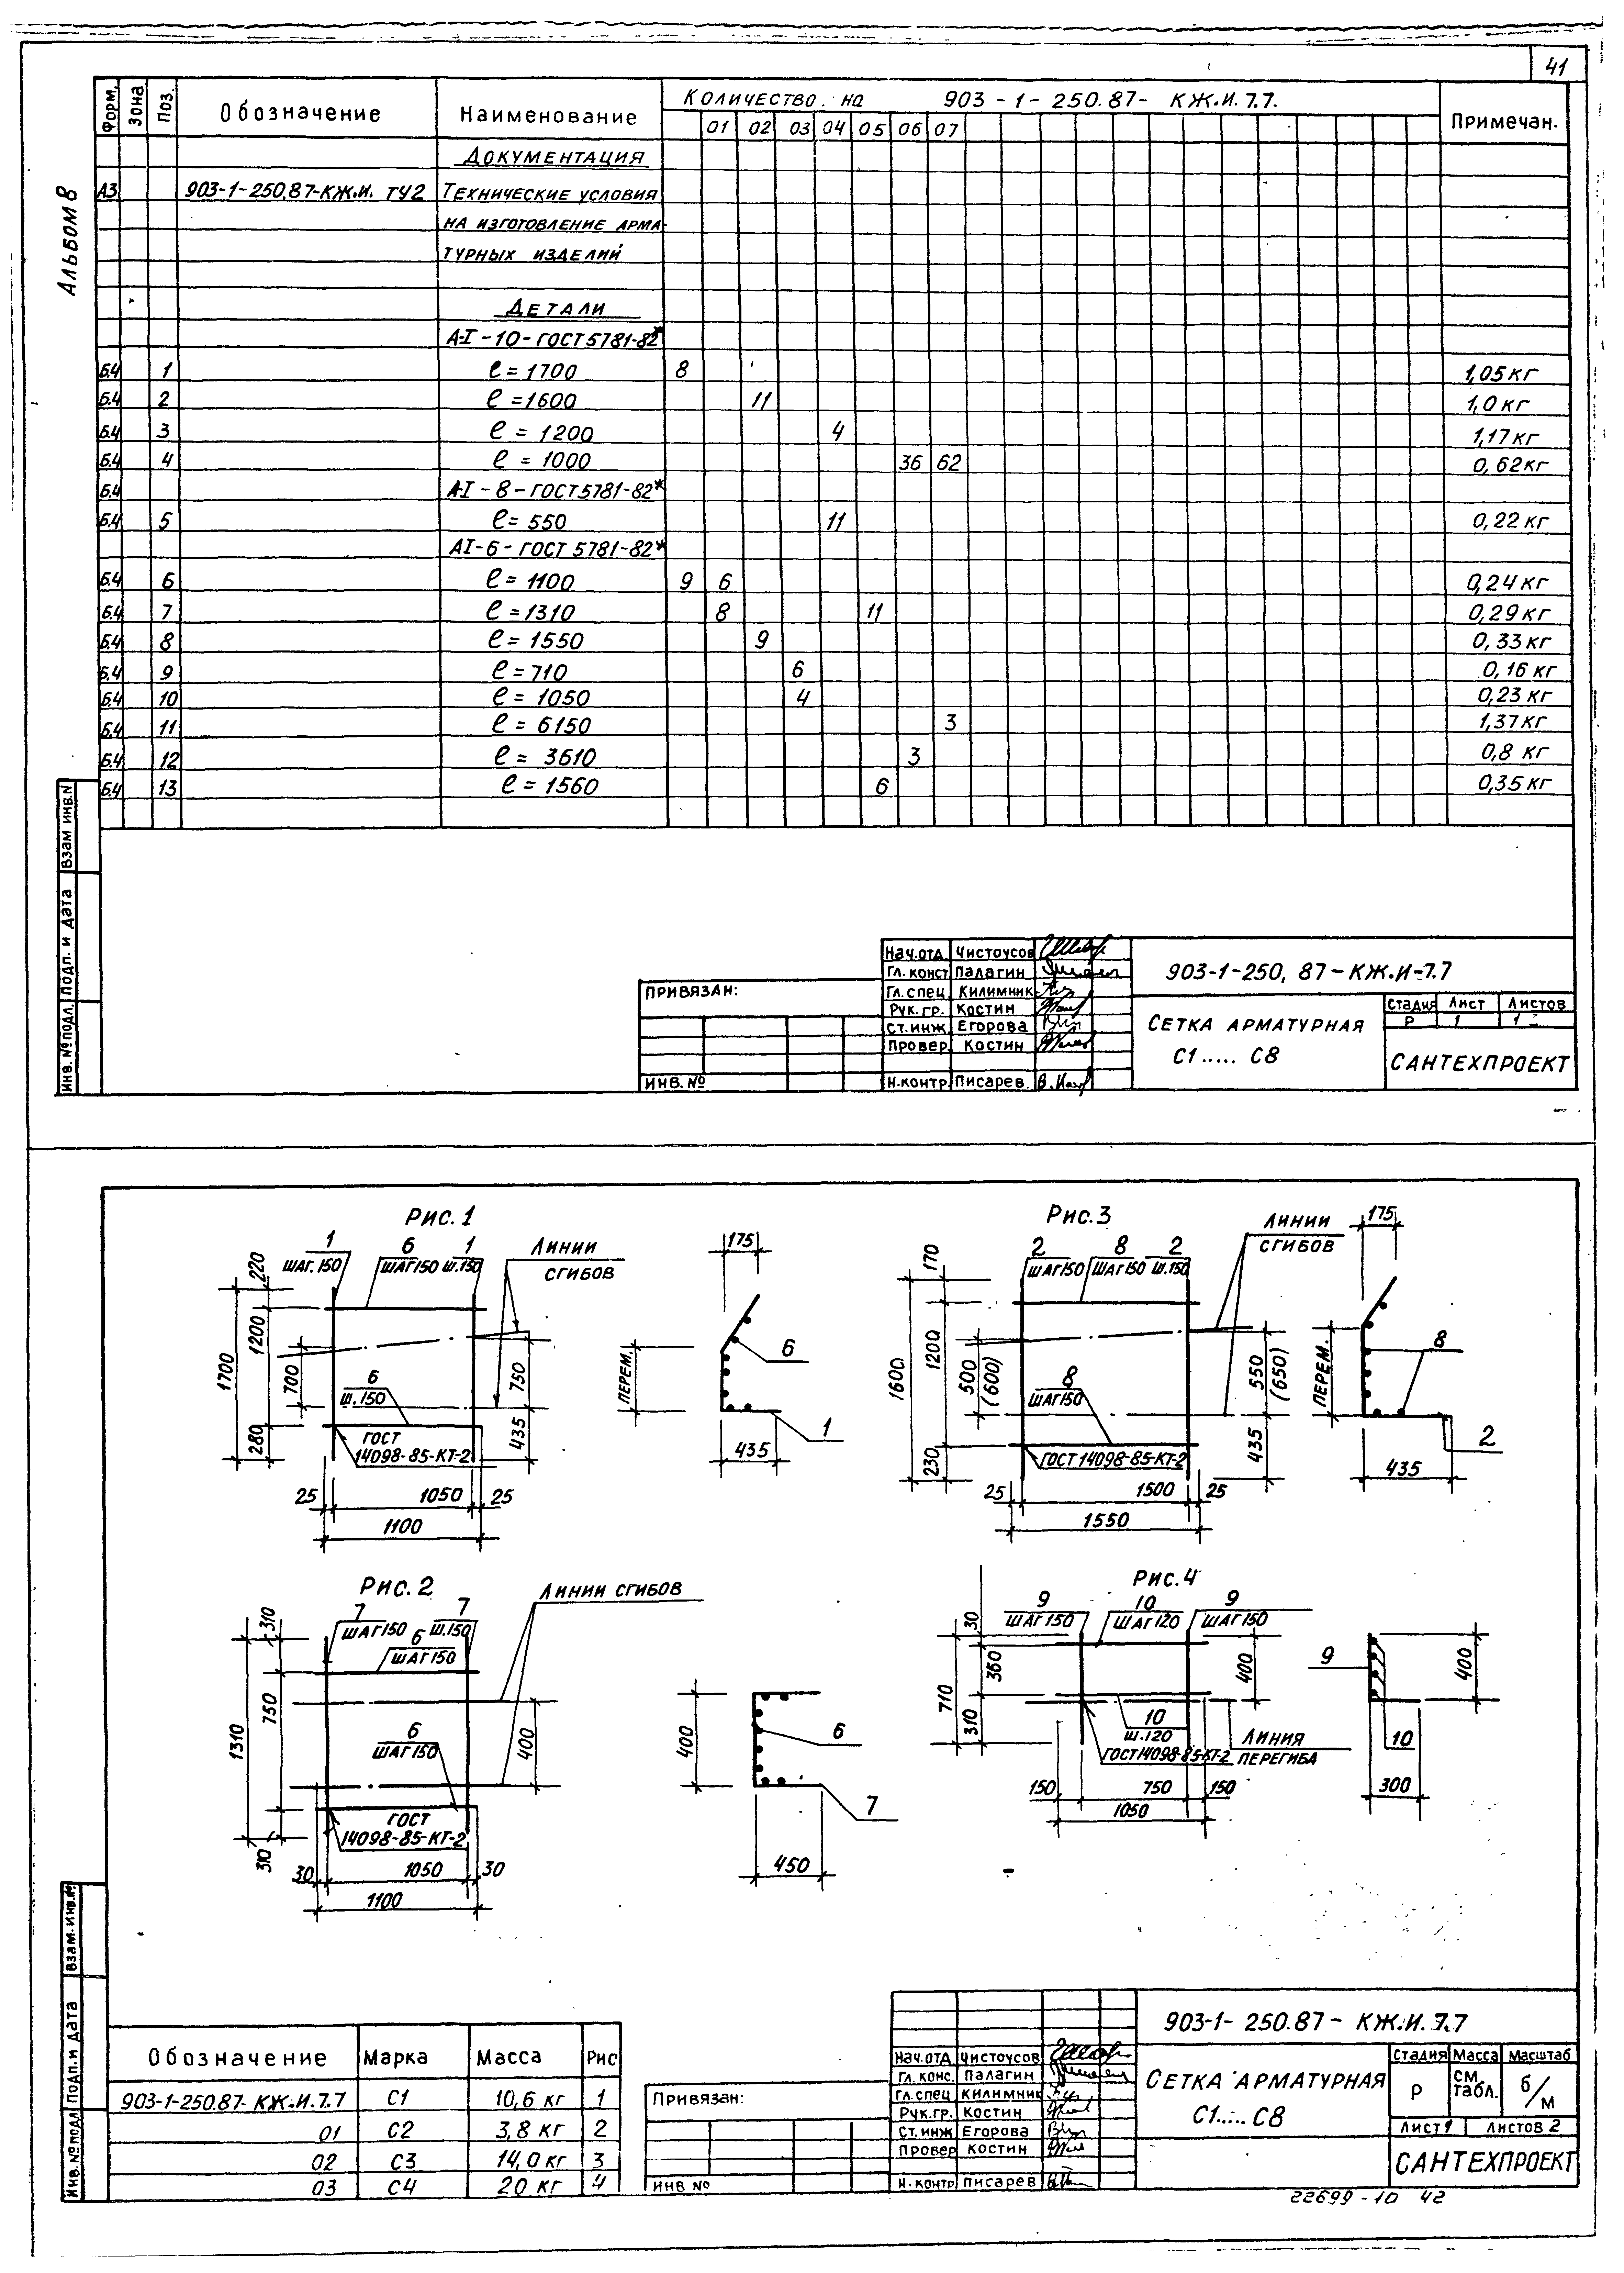 41
АЛЬБОМ 8
Форм. Зона Поз. Обозначение Наименование Количество на 903-1-250.87- КЖ.И.7.7. Примечан.
01 02 03 04 05 06 07
ДОКУМЕНТАЦИЯ
А3 903-1-250.87-КЖ.И. ТУ2 ТЕХНИЧЕСКИЕ УСЛОВИЯ
НА ИЗГОТОВЛЕНИЕ АРМА-
ТУРНЫХ ИЗДЕЛИЙ
ДЕТАЛИ
А-I-10-ГОСТ 5781-82*
Б.4 1 ℓ=1700 8 1,05 кг
Б.4 2 ℓ=1600 11 1,0 кг
Б.4 3 ℓ=1200 4 1,17 кг
Б.4 4 ℓ=1000 36 62 0,62 кг
Б.4 А-I-8-ГОСТ 5781-82*
Б.4 5 ℓ=550 11 0,22 кг
АI-6-ГОСТ 5781-82*
Б.4 6 ℓ=1100 9 6 0,24 кг
Б.4 7 ℓ=1310 8 11 0,29 кг
Б.4 8 ℓ=1550 9 0,33 кг
Б.4 9 ℓ=710 6 0,16 кг
Б.4 10 ℓ=1050 4 0,23 кг
Б.4 11 ℓ=6150 3 1,37 кг
Б.4 12 ℓ=3610 3 0,8 кг
Б.4 13 ℓ=1560 6 0,35 кг
Инв. № подл. Подп. и дата Взам инв. N
ПРИВЯЗАН:
ИНВ. №
Нач.отд. Чистоусов
Гл. конст Палагин
Гл. спец Килимник
Рук. гр. Костин
Ст. инж. Егорова
Провер. Костин
Н.контр. Писарев.
903-1-250, 87-КЖ.И-7.7
СЕТКА АРМАТУРНАЯ
С1.....С8
Стадия Лист Листов
Р 1 1
САНТЕХПРОЕКТ
Рис. 1
1 6 1
ШАГ. 150 ШАГ 150 Ш. 150
ЛИНИИ
СГИБОВ
220
1200
1700
700
280
750
435
6
Ш. 150
ГОСТ
14098-85-КТ-2
25 1050 25
1100
175
ПЕРЕМ.
6
1
435
Рис. 3
2 8 2
ШАГ150 ШАГ 150 Ш. 150
ЛИНИИ
СГИБОВ
170
1200
1600
500
(600)
230
550
(650)
435
8
ШАГ150
ГОСТ 14098-85-КТ-2
25 1500 25
1550
175
ПЕРЕМ.
8
2
435
Рис. 2
ЛИНИИ СГИБОВ
7 7
ШАГ150 Ш.150
6
ШАГ150
310
750
1310
310
400
6
ШАГ150
ГОСТ
14098-85-КТ-2
30 1050 30
1100
400
6
7
450
Рис. 4
9 10 9
ШАГ 150 ШАГ 120 ШАГ 150
30
360
710
310
400
10
Ш.120
ГОСТ14098-85-КТ-2
ЛИНИЯ
ПЕРЕГИБА
150 750 150
1050
9
400
10
300
Инв. № подл Подп. и дата Взам. инв. №
Обозначение Марка Масса Рис
903-1-250.87- КЖ.И.7.7 С1 10,6 кг 1
01 С2 3,8 кг 2
02 С3 14,0 кг 3
03 С4 20 кг 4
Привязан:
ИНВ №
Нач. отд Чистоусов
Гл. конс. Палагин
Гл. спец Килимник
Рук. гр. Костин
Ст. инж Егорова
Провер Костин
Н. контр. Писарев
903-1-250.87- КЖ.И.7.7
СЕТКА АРМАТУРНАЯ
С1.....С8
Стадия Масса Масштаб
Р см. табл. б/м
Лист 1 Листов 2
САНТЕХПРОЕКТ
22699-10 42